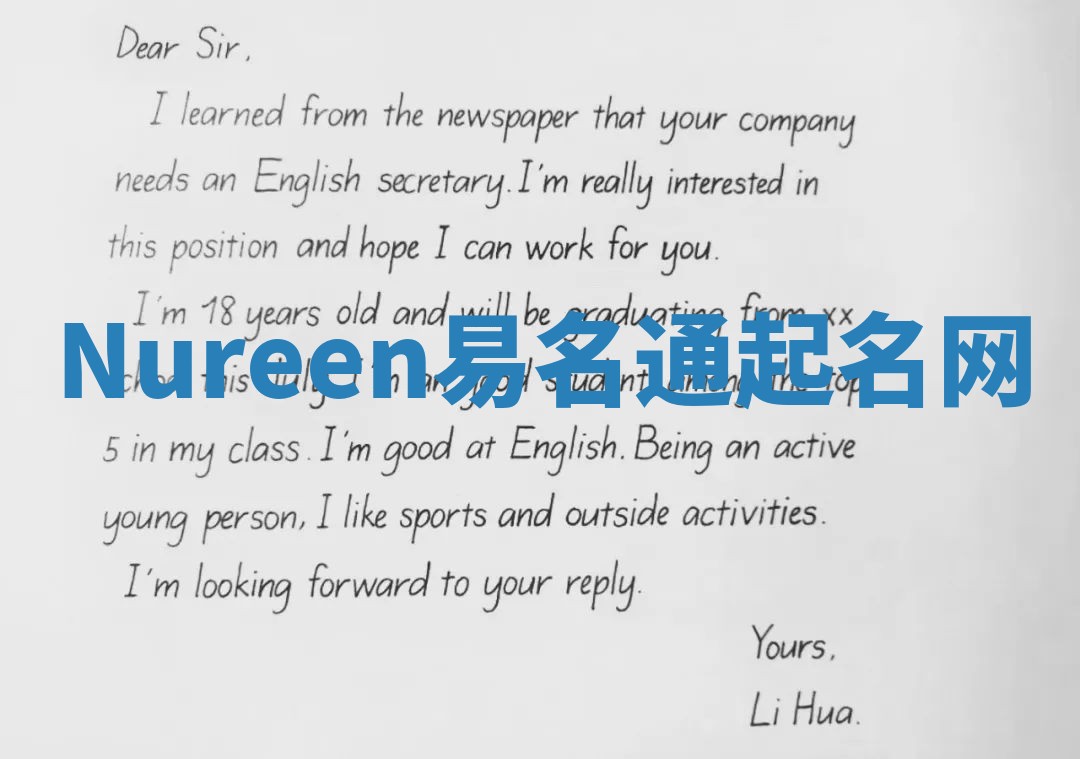 Dear Sir,
I learned from the newspaper that your company
needs an English secretary. I'm really interested in
this position and hope I can work for you.
I'm 18 years old and will be graduating from xx
Nureen易名通起名网
this July. I'm student among the top
5 in my class. I'm good at English. Being an active
young person, I like sports and outside activities.
I'm looking forward to your reply.
Yours,
Li Hua.